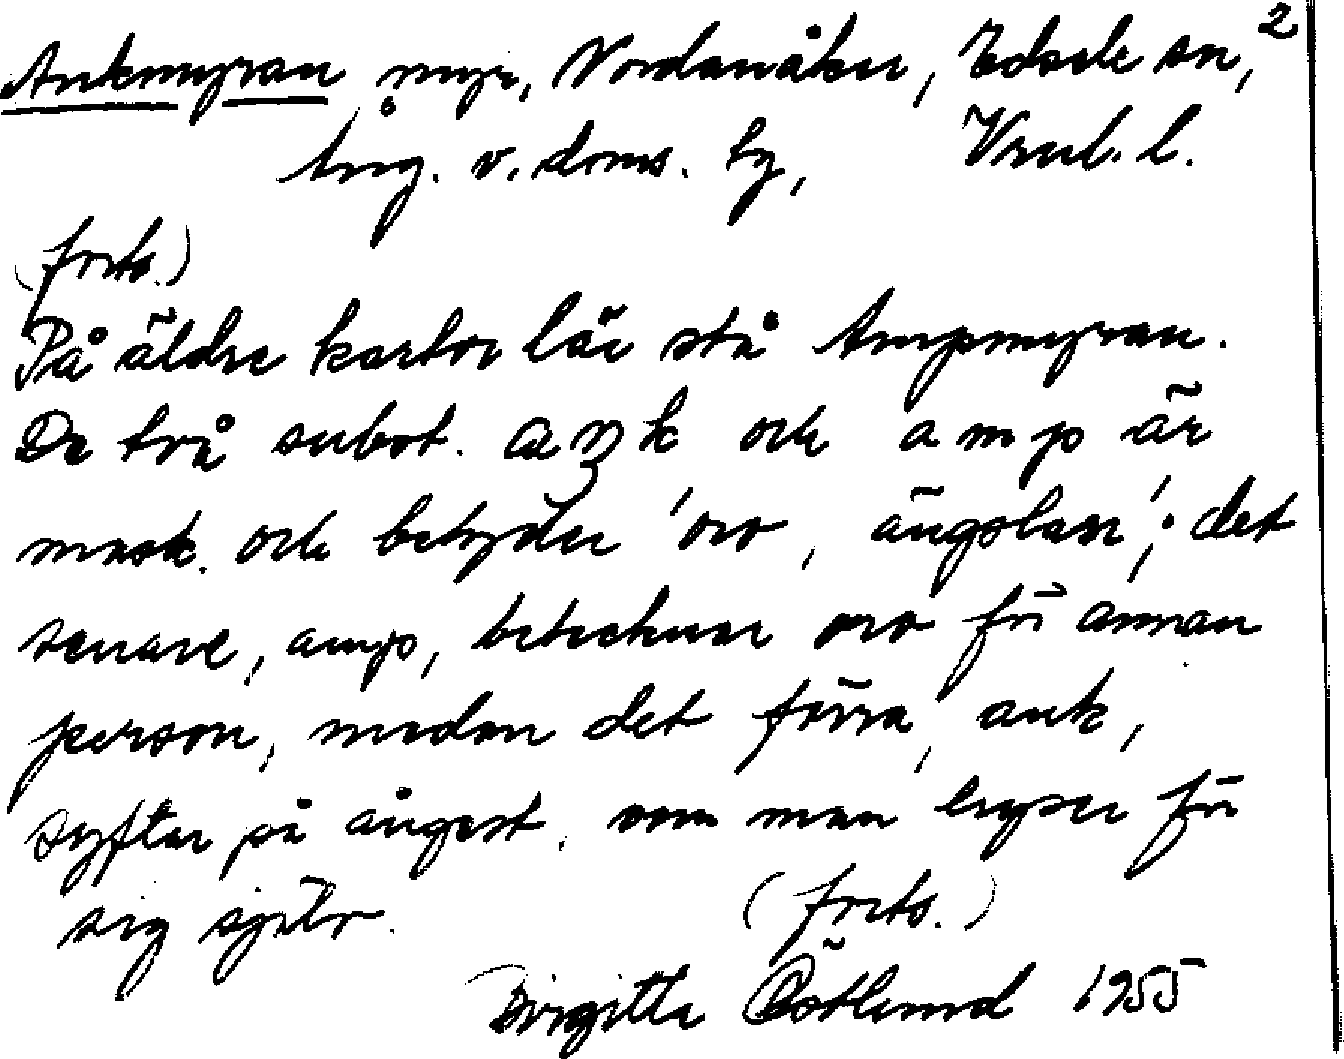 Ankmyran myr, Nordanåker, Edsele sn, 2
Ång. v. doms. tg, Vnrl. l.
(forts.)
På äldre kartor lär stå Ampmyran.
De två subst. aŋk och amp är
mask. och betyder 'oro, ängslan'; det
senare, amp, betecknar oro för annan
person, medan det förra, ank,
syftar på ångest, som man hyser för
sig själv. (forts.)
Birgitta Östlund 1955